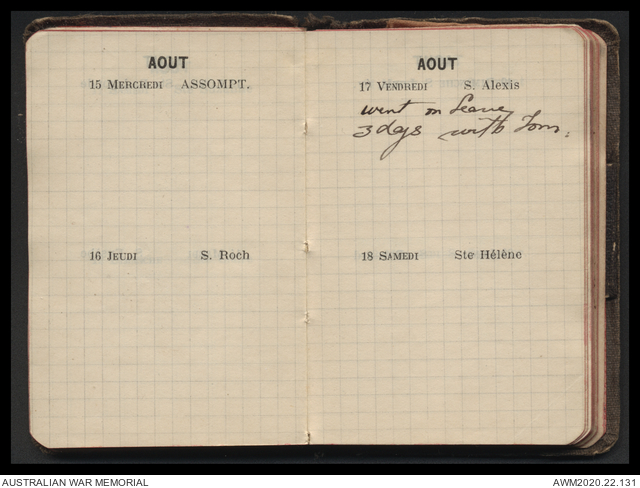 AOUT
15 MERCREDI ASSOMPT.
16 JEUDI S. Roch
AOUT
17 VENDREDI S. Alexis
went on Leave
3 days with Tom.
18 SAMEDI Ste Hélène
AUSTRALIAN WAR MEMORIAL
AWM2020.22.131